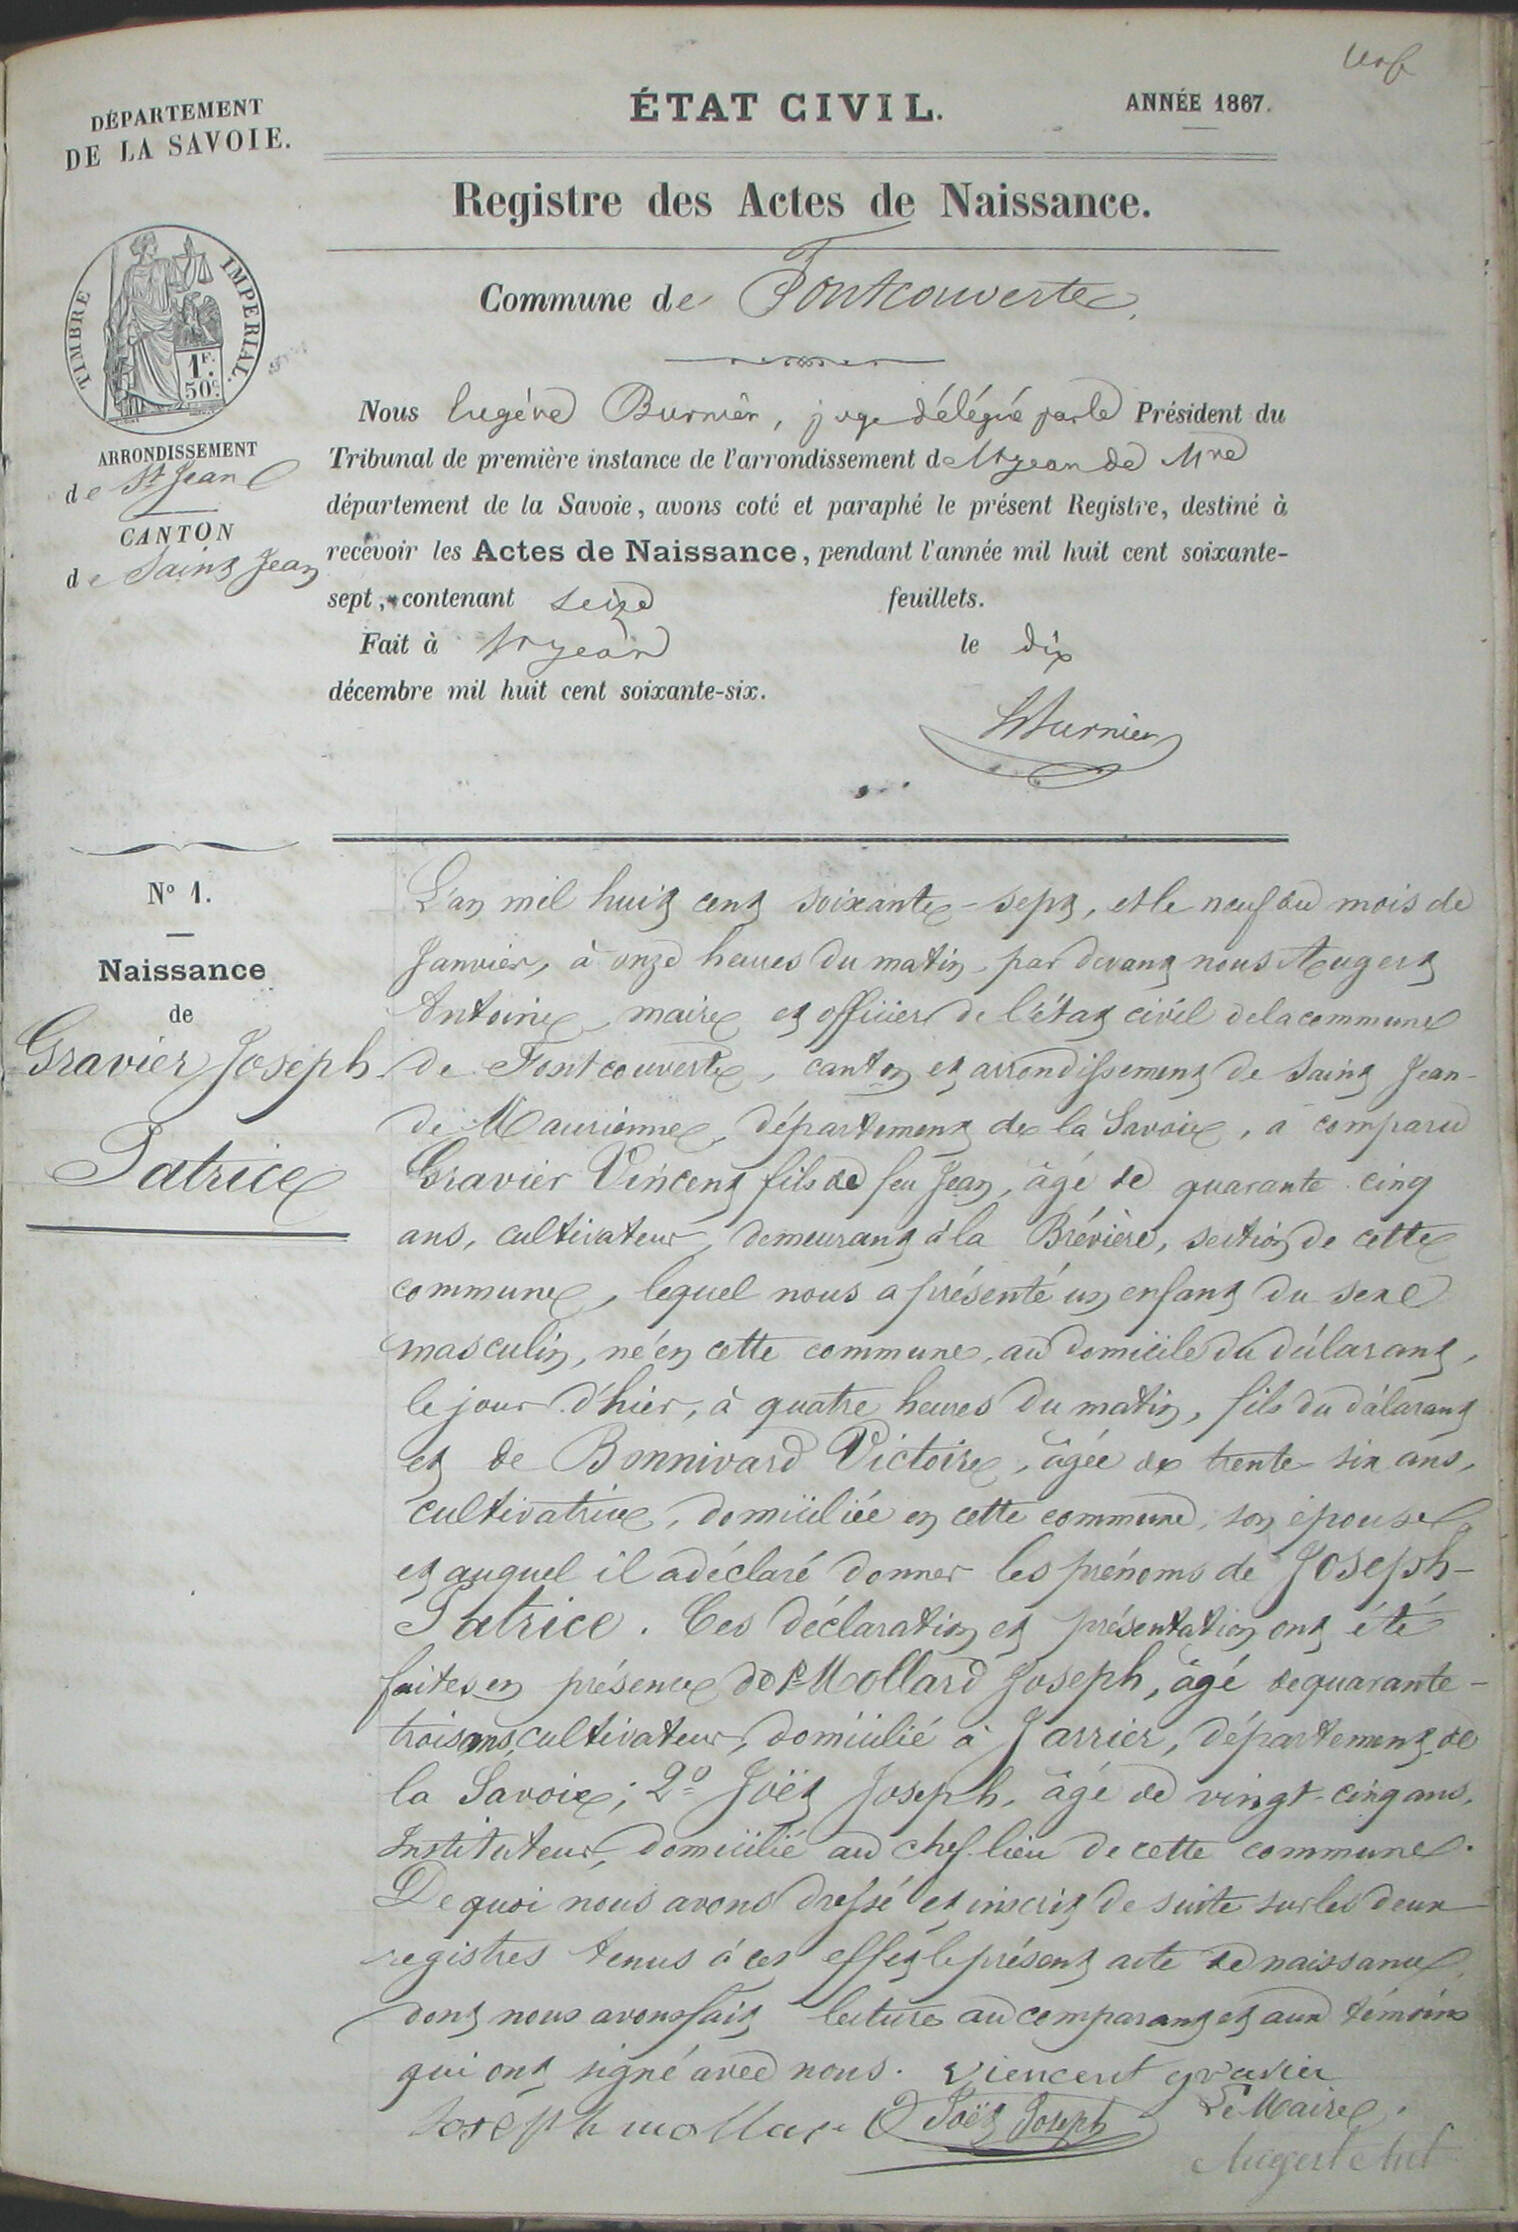 DÉPARTEMENT
DE LA SAVOIE.
ÉTAT CIVIL.
ANNÉE 1867.
Registre des Actes de Naissance.
Commune de Fontcouverte
TIMBRE IMPERIAL.
1F.
50c.
ARRONDISSEMENT
de St Jean
CANTON
de Saint Jean
Nous Eugène Burnier, juge délégué par le Président du
Tribunal de première instance de l'arrondissement de St jean de Mne
département de la Savoie, avons coté et paraphé le présent Registre, destiné à
recevoir les Actes de Naissance, pendant l'année mil huit cent soixante-
sept, contenant seize feuillets.
Fait à St jean le dix
décembre mil huit cent soixante-six.
Burnier
No 1.
Naissance
de
Gravier Joseph
Patrice
L'an mil huit cent soixante-sept, et le neuf du mois de
Janvier, à onze heures du matin, par devant nous Augert
Antoine, maire et officier de l'état civil de la commune
de Fontcouverte, canton et arrondissement de Saint Jean-
de Maurienne, département de la Savoie, a comparu
Gravier Vincent fils de feu Jean, âgé de quarante cinq
ans, cultivateur, demeurant à la Brévière, section de cette
commune, lequel nous a présenté un enfant du sexe
masculin, né en cette commune, au domicile du déclarant,
le jour d'hier, à quatre heures du matin, fils du déclarant
et de Bonnivard Victoire, âgée de trente-six ans,
cultivatrice, domiciliée en cette commune, son épouse
et auquel il a déclaré donner les prénoms de Joseph-
Patrice. Ces déclaration et présentation ont été
faites en présence de Mollard Joseph, âgé de quarante-
trois ans, cultivateur, domicilié à Jarrier, département de
la Savoie; 2o Joët Joseph, âgé de vingt-cinq ans,
Instituteur, domicilié au chef-lieu de cette commune.
De quoi nous avons dressé et inscrit de suite sur les deux
registres tenus à cet effet le présent acte de naissance,
dont nous avons fait lecture au comparant et aux témoins
qui ont signé avec nous. viencent gravier
Joseph mollar Joët Joseph Le Maire.
Augert Ant